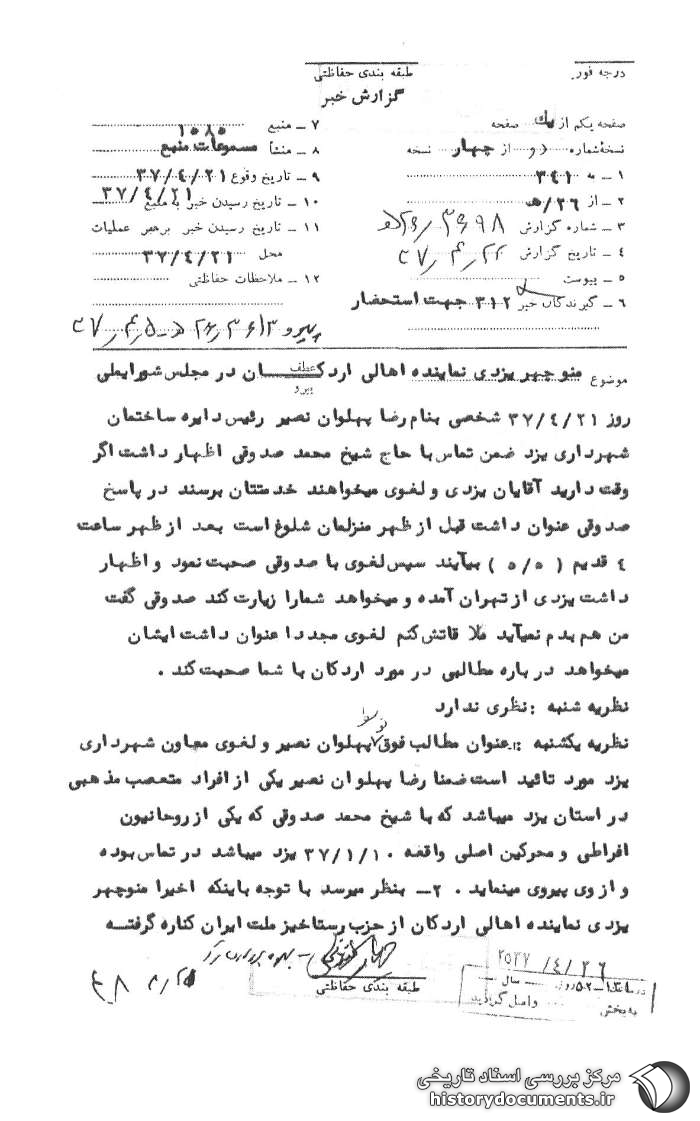 درجه فور
طبقه بندی حفاظتی
گزارش خبر
صفحه یکم از یک صفحه
نسخه شماره دو از چهار نسخه
۱ ـ به ۳۴۱
۲ ـ از ۲۶/ه‍
۳ ـ شماره گزارش ۲۶/۳۶۹۸ه‍
۴ ـ تاریخ گزارش ۳۷/۴/۲۲
۵ ـ پیوست
۶ ـ گیرندگان خبر ۳۱۲ جهت استحضار
۷ ـ منبع ۱۰۸۵
۸ ـ منشأ مسموعات منبع
۹ ـ تاریخ وقوع ۳۷/٤/۲۱
۱۰ ـ تاریخ رسیدن خبر به منبع ۳۷/٤/۲۱
۱۱ ـ تاریخ رسیدن خبر برهبر عملیات
محل ۳۷/٤/۲۱
۱۲ ـ ملاحظات حفاظتی
پیرو ۲۶/۳۶۱۳ه‍ ـ ۳۷/۴/۵
موضوع منوچهر یزدی نماینده اهالی اردکان در مجلس شورایملی
عطف
پیرو
روز ۳۷/٤/۲۱ شخصی بنام رضا پهلوان نصیر رئیس دایره ساختمان
شهرداری یزد ضمن تماس با حاج شیخ محمد صدوقی اظهار داشت اگر
وقت دارید آقایان یزدی و لغوی میخواهند خدمتتان برسند در پاسخ
صدوقی عنوان داشت قبل از ظهر منزلمان شلوغ است بعد از ظهر ساعت
٤ قدیم ( ۵/۵ ) بیآیند سپس لغوی با صدوقی صحبت نمود و اظهار
داشت یزدی از تهران آمده و میخواهد شمارا زیارت کند صدوقی گفت
من هم بدم نمیآید ملاقاتش کنم لغوی مجددا عنوان داشت ایشان
میخواهد درباره مطالبی در مورد اردکان با شما صحبت کند .
نظریه شنبه : نظری ندارد
نظریه یکشنبه : ۱ـ عنوان مطالب فوق توسط پهلوان نصیر و لغوی معاون شهرداری
یزد مورد تائید است ضمنا رضا پهلوان نصیر یکی از افراد متعصب مذهبی
در استان یزد میباشد که با شیخ محمد صدوقی که یکی از روحانیون
افراطی و محرکین اصلی واقعه ۳۷/۱/۱۰ یزد میباشد در تماس بوده
و از وی پیروی مینماید . ۲ـ بنظر میرسد با توجه باینکه اخیرا منوچهر
یزدی نماینده اهالی اردکان از حزب رستاخیز ملت ایران کناره گرفتسه
طبقه بندی حفاظتی
۲۵۳۷/٤/۲۶
سال
واصل گردید
به بخش
مرکز بررسی اسناد تاریخی
historydocuments.ir